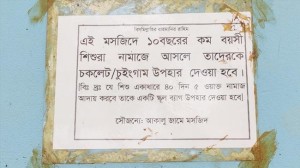 বিসমিল্লাহির রাহমানির রাহিম
এই মসজিদে ১০বছরের কম বয়সী
শিশুরা নামাজে আসলে তাদেরকে
চকলেট/চুইংগাম উপহার দেওয়া হবে।
[বিঃ দ্রঃ যে শিশু একাধারে ৪০ দিন ৫ ওয়াক্ত নামাজ
আদায় করবে তাকে একটি স্কুল ব্যাগ উপহার দেওয়া হবে]
সৌজন্যেঃ আকালু জামে মসজিদ